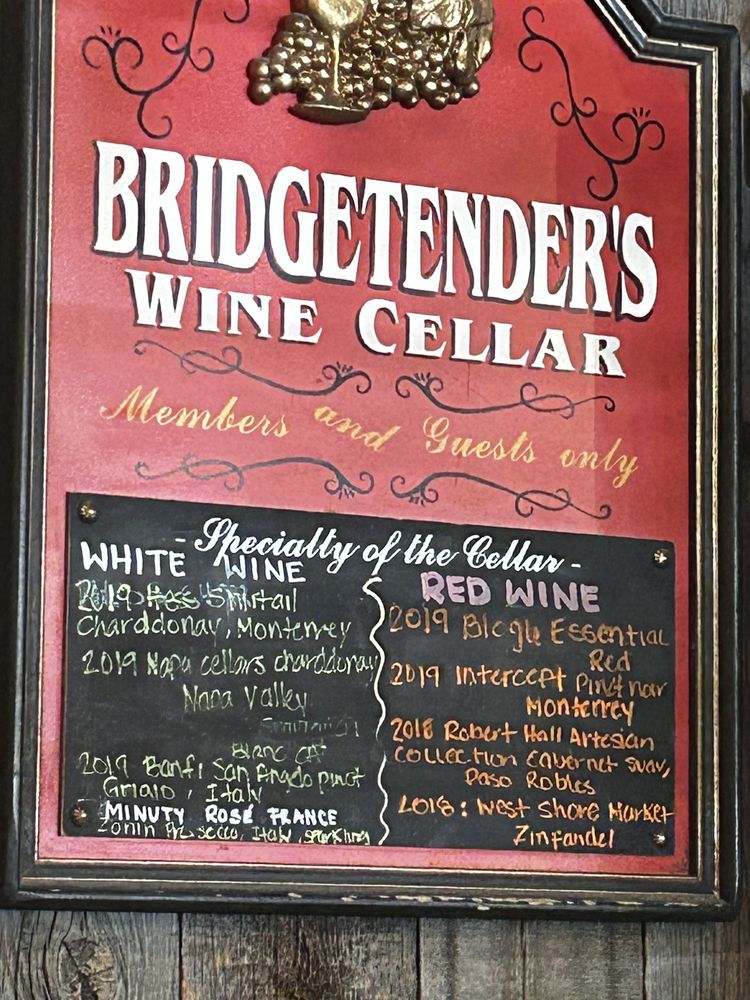 BRIDGETENDER'S
WINE CELLAR
Members and Guests only
- Specialty of the Cellar -
WHITE WINE
2019 Shirtail
Charddonay, Monterrey
2019 Napa cellars charddonay
Napa Valley
Blanc CA
2019 Banfi San Angelo pinot
Grigio, Italy
MINUTY ROSÉ FRANCE
Zonin Prosecco, Italy, sparkling
RED WINE
2019 Blegle Essential
Red
2019 Intercept Pinot noir
Monterrey
2018 Robert Hall Artesian
Collection Cabernet Suav,
Paso Robles
2018: West Shore Market
Zinfandel